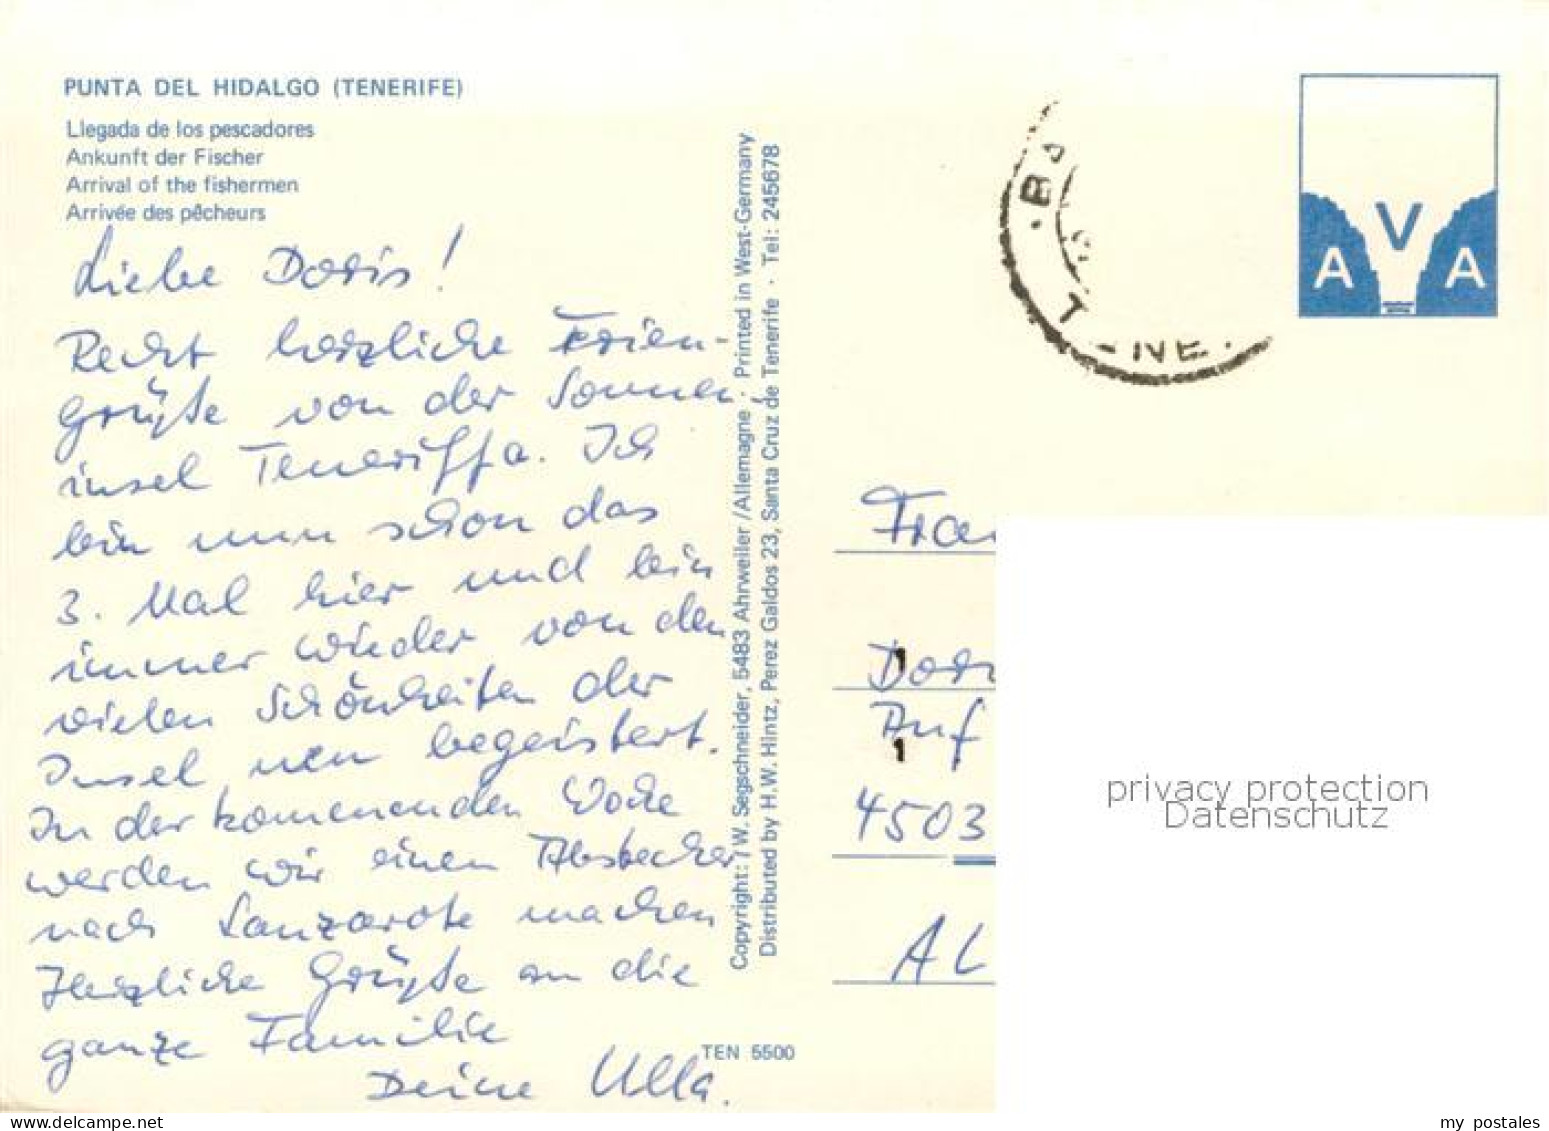 PUNTA DEL HIDALGO (TENERIFE)
Llegada de los pescadores
Ankunft der Fischer
Arrival of the fishermen
Arrivée des pêcheurs
Liebe Doris!
Recht herzliche Ferien-
grüße von der Sonnen-
insel Teneriffa. Ich
bin nun schon das
3. Mal hier und bin
immer wieder von den
vielen Schönheiten der
Insel neu begeistert.
In der kommenden Woche
werden wir einen Abstecher
nach Lanzarote machen
Herzliche Grüße an die
ganze Familie
Deine Ulla.
TEN 5500
Copyright: W. Segschneider, 5483 Ahrweiler/Allemagne · Printed in West-Germany
Distributed by H.W. Hintz, Perez Galdos 23, Santa Cruz de Tenerife · Tel: 245678
AVA
Auf
4503
AL
privacy protection
Datenschutz
my postales